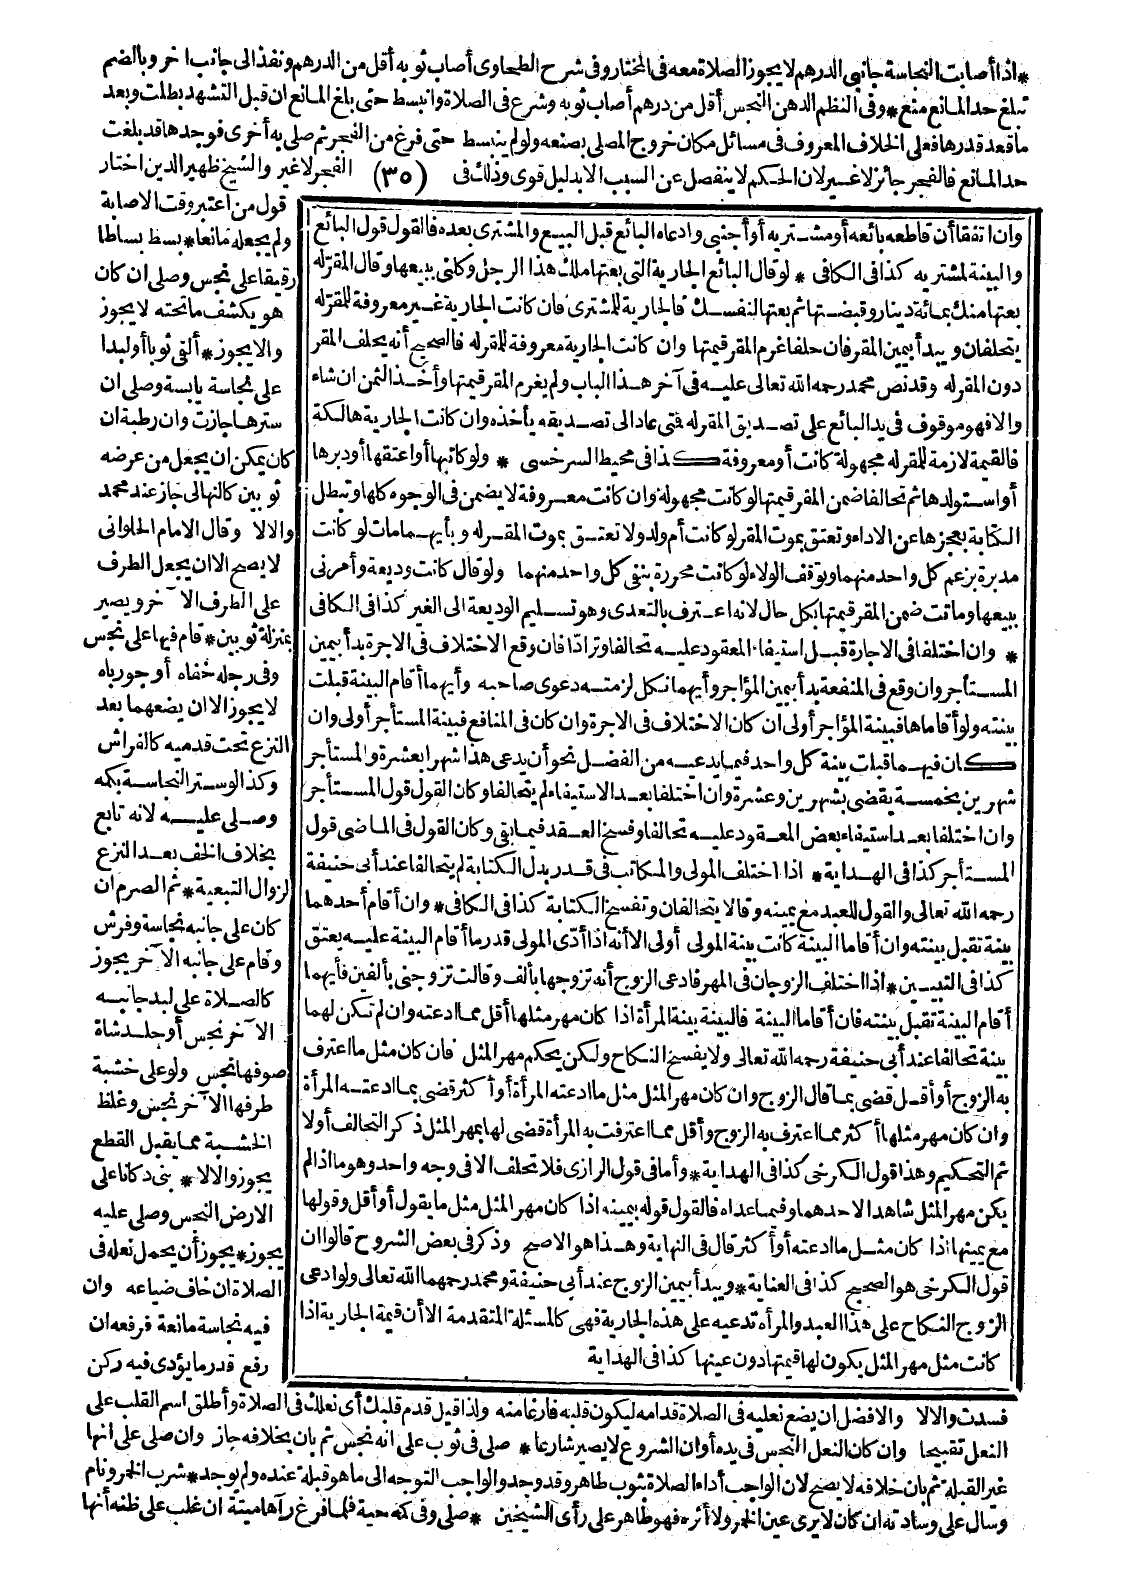 *اذا أصابت النجاسة جانبي الدرهم لا يجوز الصلاة معه في المختار وفي شرح الطحاوى أصاب ثوبه أقل من الدرهم ونفذ الى جانب اخر وبالضم
تبلغ حد المانع منع * وفى النظم الدهن النجس أقل من درهم أصاب ثوبه وشرع فى الصلاة وانبسط حتى بلغ المانع ان قبل التشهد بطلت وبعد
ما قعد قدرها فعلى الخلاف المعروف فى مسائل مكان خروج المصلى بصنعه ولو لم ينبسط حتى فرغ من الفجر ثم صلى به أخرى فوجدها قد بلغت
حد المانع فالفجر جائز لا غير لان الحكم لا ينفصل عن السبب الا بدليل قوى وذلك فى (٣٥) الفجر لا غير والشيخ ظهير الدين اختار
قول من اعتبر وقت الاصابة
ولم يجعله مانعا * بسط بساطا
رقيقا على نجس وصلى ان كان
هو يكشف ما تحته لا يجوز
والا يجوز * ألقى ثوبا أو لبدا
على نجاسة يابسة وصلى ان
سترها جازت وان رطبة ان
كان يمكن ان يجعل من عرضه
ثوبين كالنهالى جاز عند محمد
والا لا وقال الامام الحلوانى
لا يصح الا ان يجعل الطرف
على الطرف الآخر ويصير
بمنزلة ثوبين * قام فيها على نجس
وفى رجله خفاه أو جورباه
لا يجوز الا ان يضعهما بعد
النزع تحت قدميه كالفراش
وكذا لو ستر النجاسة بكمه
وصلى عليه لانه تابع
بخلاف الخف بعد النزع
لزوال التبعية * ثم الصرم ان
كان على جانبه نجاسة وفرش
وقام على جانبه الآخر يجوز
كالصلاة على لبد جانبه
الآخر نجس أو جلد شاة
صوفها نجس ولو على خشبة
طرفها الآخر نجس وغلظ
الخشبة مما يقبل القطع
يجوز والا لا * بنى دكانا على
الارض النجس وصلى عليه
يجوز * يجوز أن يحمل نعله فى
الصلاة ان خاف ضياعه وان
فيه نجاسة مانعة فرفعه ان
رفع قدر ما يؤدى فيه ركن
وان اتفقا أن قاطعه بائعه أو مشتريه أو أجنبى وادعاه البائع قبل البيع والمشترى بعده فالقول قول البائع
والبينة لمشتريه كذا فى الكافى * لو قال البائع الجارية التى بعتها ملك هذا الرجل وكلنى ببيعها وقال المقر له
بعتها منك بمائة دينار وقبضتها ثم بعتها لنفسك فالجارية للمشترى فان كانت الجارية غير معروفة للمقر له
يتحلفان ويبدأ بيمين المقر فان حلفا غرم المقر قيمتها وان كانت الجارية معروفة للمقر له فالصحيح أنه يحلف المقر
دون المقر له وقد نص محمد رحمه الله تعالى عليه فى آخر هذا الباب ولم يغرم المقر قيمتها وأخذ الثمن ان شاء
والا فهو موقوف فى يد البائع على تصديق المقر له فتى عاد الى تصديقه يأخذه وان كانت الجارية هالكة
فالقيمة لازمة للمقر له مجهولة كانت أو معروفة كذا فى محيط السرخسى * ولو كاتبها أو اعتقها أو دبرها
أو استولدها ثم تحالفا ضمن المقر قيمتها لو كانت مجهولة وان كانت معروفة لا يضمن فى الوجوه كلها وتبطل
الكتابة بعجزها عن الاداء وتعتق بموت المقر لو كانت أم ولد ولا تعتق بموت المقر له وبأيهما مات لو كانت
مدبرة بزعم كل واحد منهما ويوقف الولاء لو كانت محررة بنفى كل واحد منهما ولو قال كانت وديعة وأمرنى
ببيعها وماتت ضمن المقر قيمتها بكل حال لانه اعترف بالتعدى وهو تسليم الوديعة الى الغير كذا فى الكافى
* وان اختلفا فى الاجارة قبل استيفاء المعقود عليه تحالفا وترادّا فان وقع الاختلاف فى الاجرة بدأ بيمين
المستأجر وان وقع فى المنفعة بدأ بيمين المؤاجر وأيهما نكل لزمته دعوى صاحبه وأيهما أقام البينة قبلت
بينته ولو أقاماها فبينة المؤاجر أولى ان كان الاختلاف فى الاجرة وان كان فى المنافع فبينة المستأجر أولى وان
كان فيهما قبلت بينة كل واحد فيما يدعيه من الفضل نحو أن يدعى هذا شهرا بعشرة والمستأجر
شهرين بخمسة يقضى بشهرين وعشرة وان اختلفا بعد الاستيفاء لم يتحالفا وكان القول قول المستأجر
وان اختلفا بعد استيفاء بعض المعقود عليه تحالفا وفسخ العقد فيما بقى وكان القول فى الماضى قول
المستأجر كذا فى الهداية * اذا اختلف المولى والمكاتب فى قدر بدل الكتابة لم يتحالفا عند أبى حنيفة
رحمه الله تعالى والقول للعبد مع يمينه وقالا يتحالفان وتفسخ الكتابة كذا فى الكافى * وان أقام أحدهما
بينة تقبل بينته وان أقاما البينة كانت بينة المولى أولى الا أنه اذا أدّى المولى قدر ما أقام البينة عليه يعتق
كذا فى التبيين * اذا اختلف الزوجان فى المهر فادعى الزوج أنه تزوجها بألف وقالت تزوجنى بألفين فأيهما
أقام البينة تقبل بينته فان أقاما البينة فالبينة بينة المرأة اذا كان مهر مثلها أقل مما ادعته وان لم تكن لهما
بينة تحالفا عند أبى حنيفة رحمه الله تعالى ولا يفسخ النكاح ولكن يحكم مهر المثل فان كان مثل ما اعترف
به الزوج أو أقل قضى بما قال الزوج وان كان مهر المثل مثل ما ادعته المرأة أو أكثر قضى بما ادعته المرأة
وان كان مهر مثلها أكثر مما اعترف به الزوج وأقل مما اعترفت به المرأة قضى لها بمهر المثل ذكر التحالف أولا
ثم التحكيم وهذا قول الكرخى كذا فى الهداية * وأما فى قول الرازى فلا تحلف الا فى وجه واحد وهو ما اذا لم
يكن مهر المثل شاهدا لاحدهما وفيما عداه فالقول قوله بيمينه اذا كان مهر المثل مثل ما يقول أو أقل وقولها
مع يمينها اذا كان مثل ما ادعته أو أكثر قال فى النهاية وهذا هو الاصح وذكر فى بعض الشروح قالوا ان
قول الكرخى هو الصحيح كذا فى العناية * ويبدأ بيمين الزوج عند أبى حنيفة ومحمد رحمهما الله تعالى ولو ادعى
الزوج النكاح على هذا العبد والمرأة تدعيه على هذه الجارية فهى كالمسئلة المتقدمة الا أن قيمة الجارية اذا
كانت مثل مهر المثل يكون لها قيمتها دون عينها كذا فى الهداية
فسدت والا لا والافضل ان يضع نعليه فى الصلاة قدامه ليكون قلبه فارغا منه ولذا قيل قدم قلبك أى نعلك فى الصلاة وأطلق اسم القلب على
النعل تقبيحا وان كان النعل النجس فى يده أو ان الشروع لا يصير شارعا * صلى فى ثوب على انه نجس ثم بان بخلافه جاز وان صلى على انها
غير القبلة ثم بان خلافه لا يصح لان الواجب أداء الصلاة بثوب طاهر وقد وجد والواجب التوجه الى ما هو قبلة عنده ولم يوجد * شرب الخمر ونام
وسال على وسادته ان كان لا يرى عين الخمر ولا أثره فهو طاهر على رأى الشيخين * صلى وفى كمه حية فلما فرغ رآها ميتة ان غلب على ظنه أنها